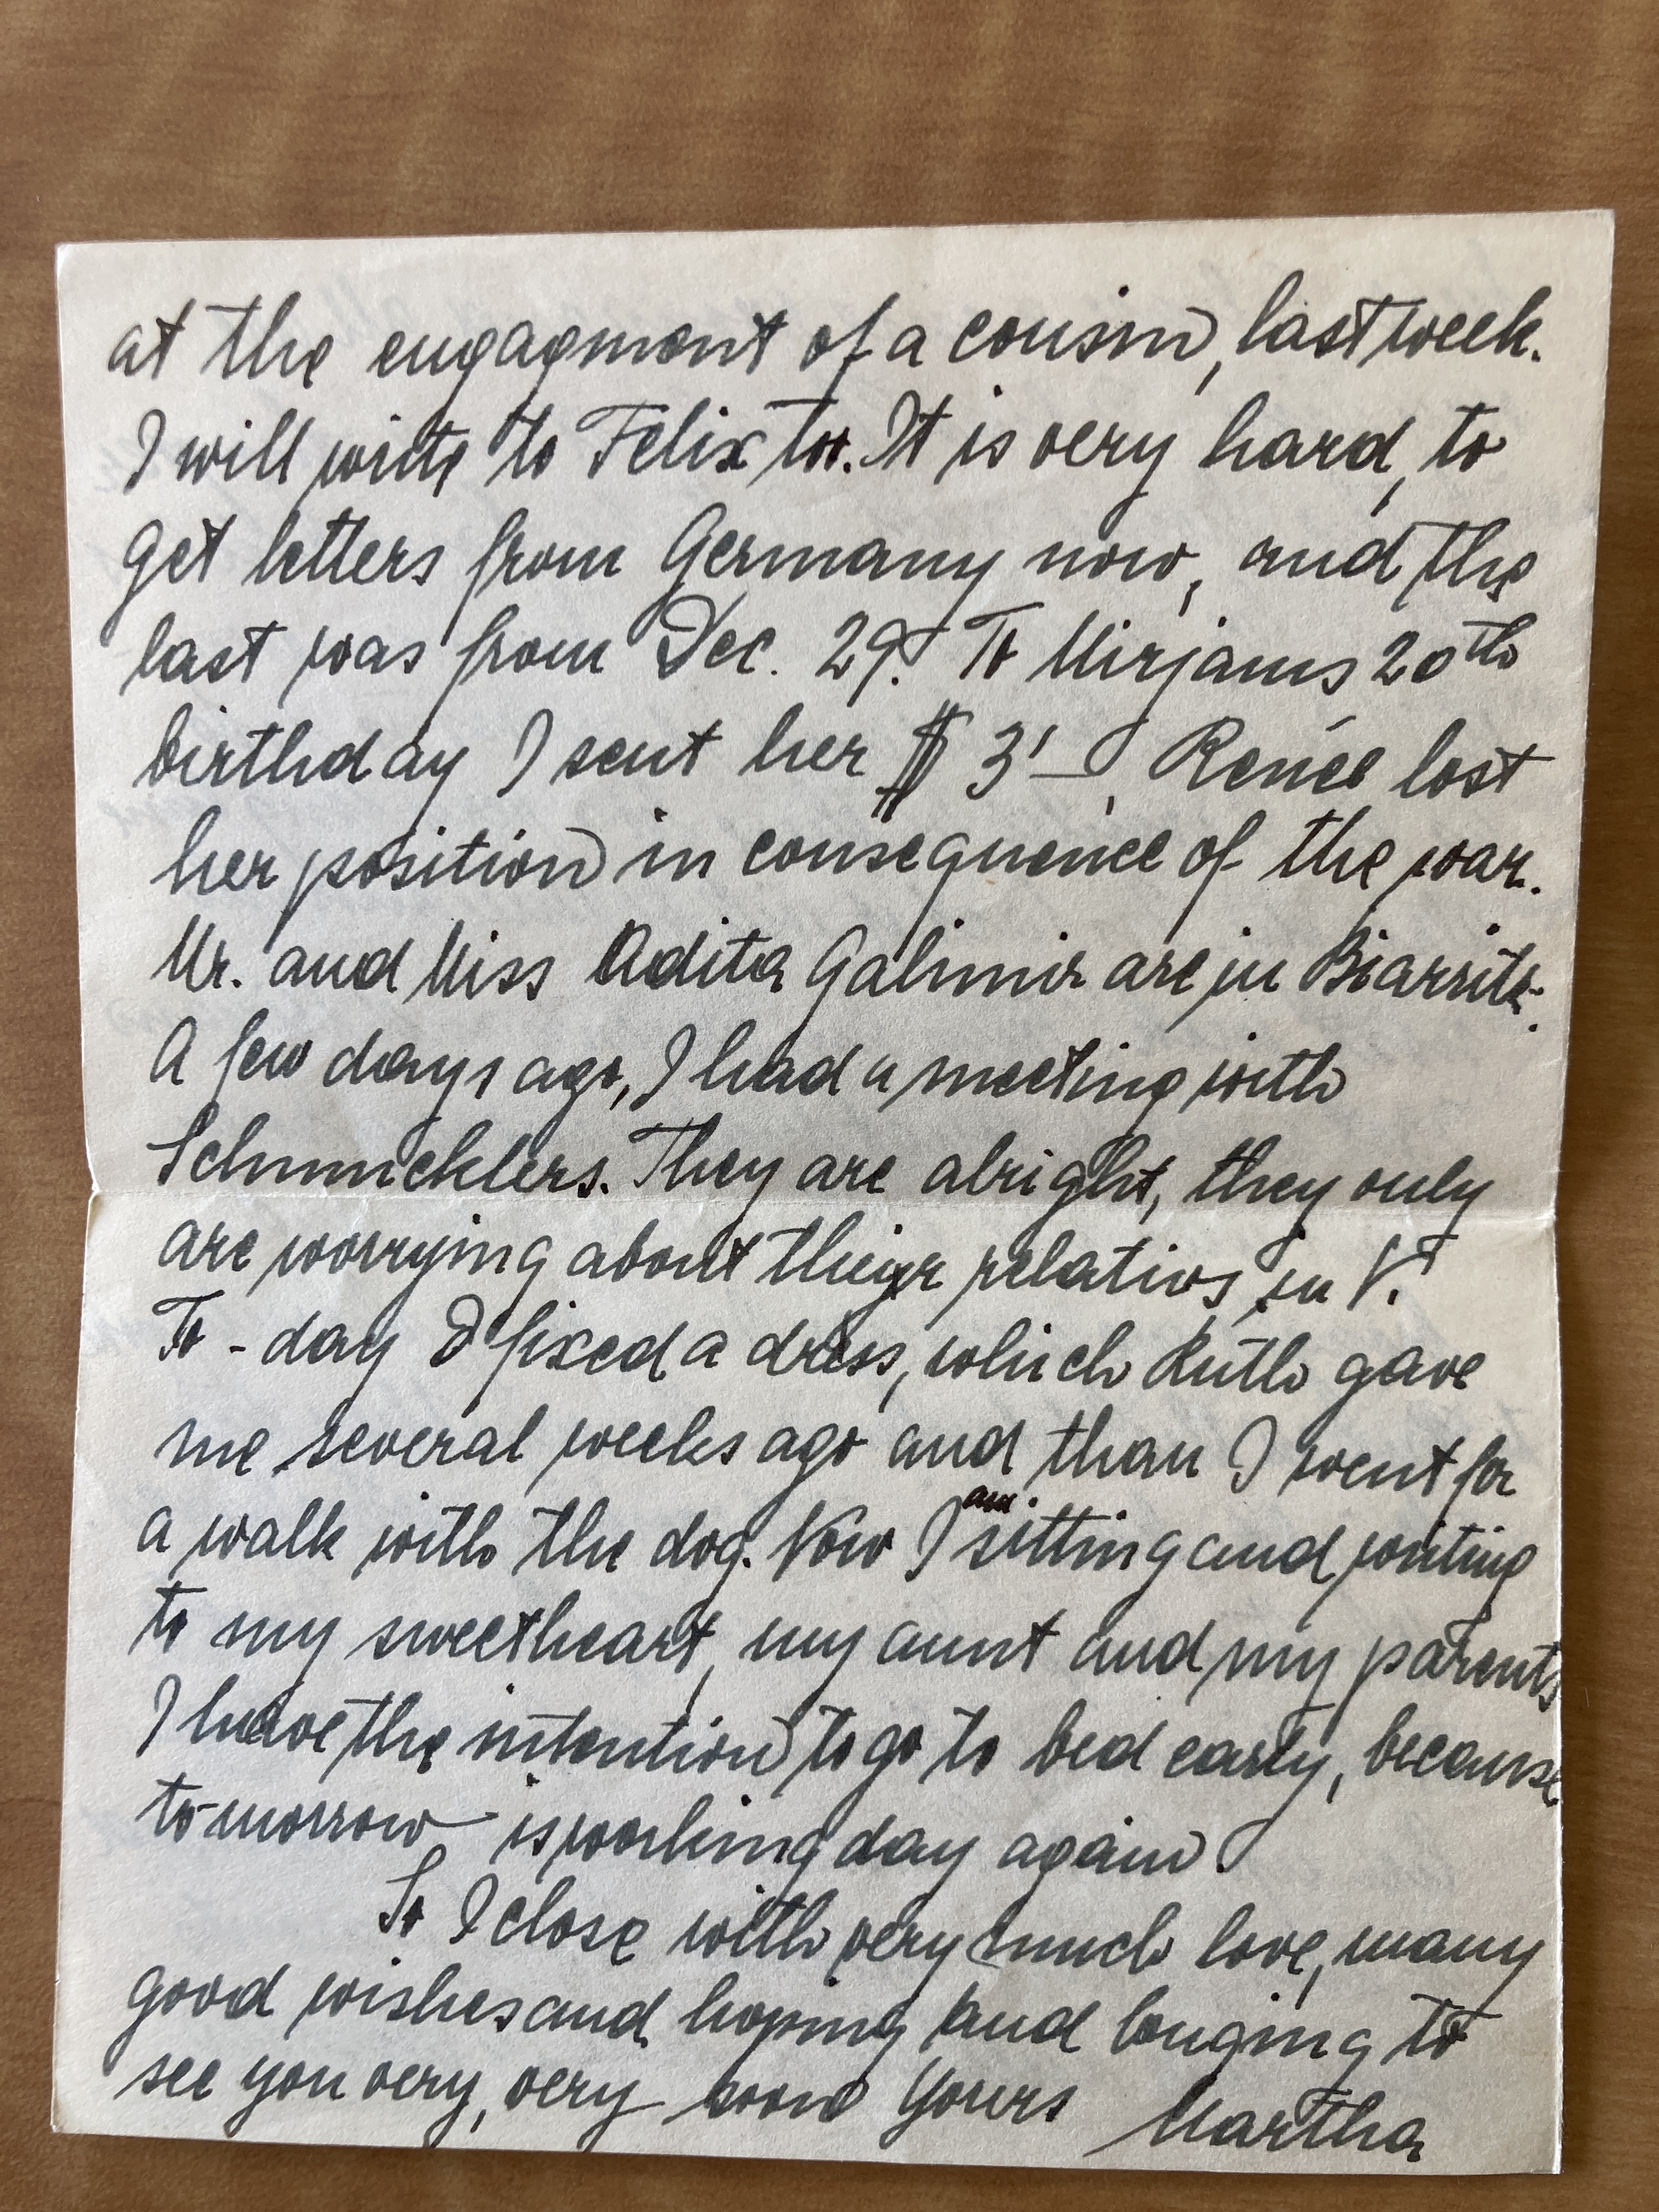 at the engagment of a cousin, last week.
I will write to Felix too. It is very hard, to
get letters from Germany now, and the
last was from Dec. 29. To Mirjams 20th
birthday I sent her $ 3'—. Renée lost
her position in consequence of the war.
Mr. and Miss Adita Galimir are in Biarritz.
A few days ago, I had a meeting with
Schmucklers. They are alright, they only
are worrying about their relativs in V.
To-day I fixed a dress, which Ruth gave
me several weeks ago and than I went for
a walk with the dog. Now I am sitting and writing
to my sweetheart, my aunt and my parents
I have the intention to go to bed early, because
to-morrow is working day again.
So I close with very much love, many
good wishes and hoping and longing to
see you very, very soon Yours Martha